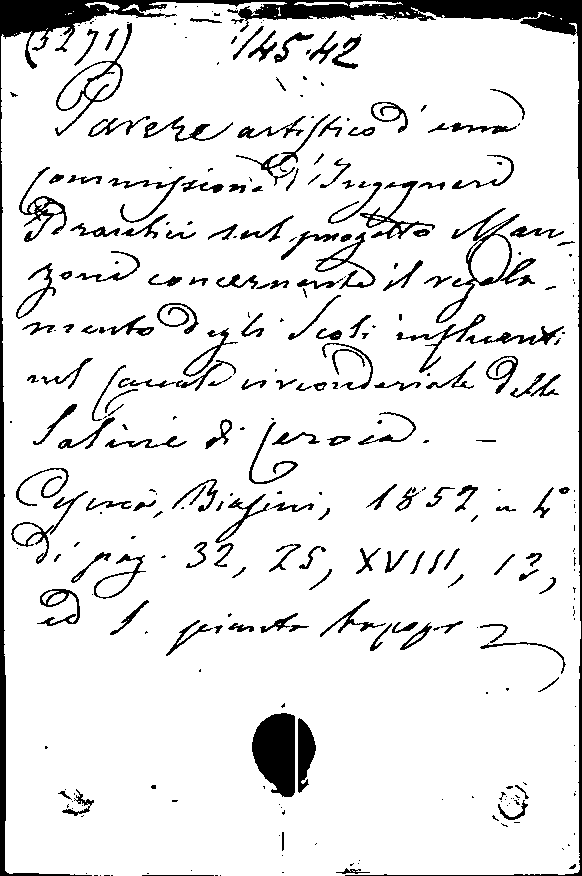 (5271) 145.42
Parere artistico d'una
commissione d'Ingegneri
Idraulici sul progetto Man-
zoni concernente il regola-
mento degli Scoli influenti
nel Canale circondariale delle
Saline di Cervia. —
Cesena, Biasini, 1852, in 4°
di pag. 32, 25, XVIII, 13,
ed 1. pianta topogr